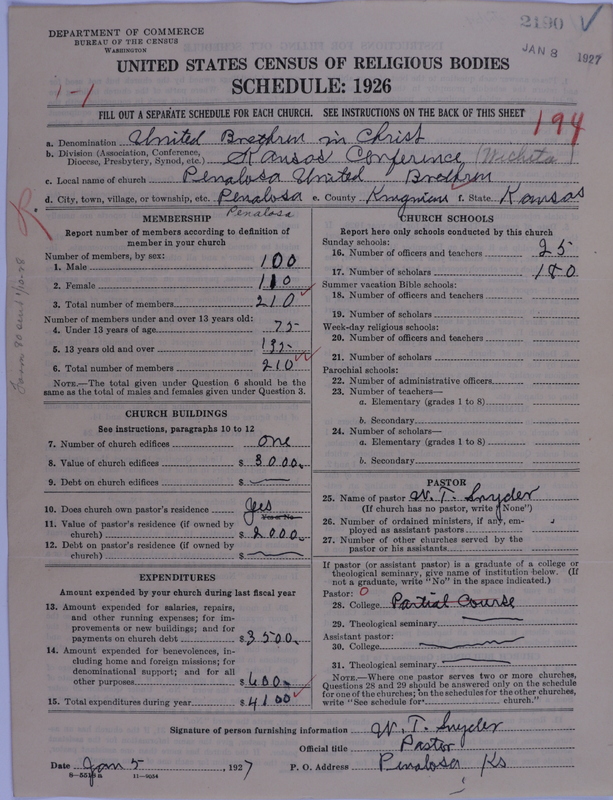 2190
JAN 8 1927
DEPARTMENT OF COMMERCE
BUREAU OF THE CENSUS
WASHINGTON
UNITED STATES CENSUS OF RELIGIOUS BODIES
SCHEDULE: 1926
1-1
FILL OUT A SEPARATE SCHEDULE FOR EACH CHURCH. SEE INSTRUCTIONS ON THE BACK OF THIS SHEET
194
a. Denomination United Brethren in Christ
b. Division (Association, Conference, Diocese, Presbytery, Synod, etc.) Kansas Conference (Wichita)
c. Local name of church Penalosa United Brethren
d. City, town, village, or township, etc. Penalosa e. County Kingman f. State Kansas
Penalosa
MEMBERSHIP
Report number of members according to definition of
member in your church
Number of members, by sex:
1. Male 100
2. Female 110
3. Total number of members 210
Number of members under and over 13 years old:
4. Under 13 years of age 75
5. 13 years old and over 135
6. Total number of members 210
NOTE.—The total given under Question 6 should be the
same as the total of males and females given under Question 3.
CHURCH BUILDINGS
See instructions, paragraphs 10 to 12
7. Number of church edifices one
8. Value of church edifices $ 3000.
9. Debt on church edifices $
10. Does church own pastor's residence Yes
Yes or No
11. Value of pastor's residence (if owned by
church) $ 2000.
12. Debt on pastor's residence (if owned by
church) $
EXPENDITURES
Amount expended by your church during last fiscal year
13. Amount expended for salaries, repairs,
and other running expenses; for im-
provements or new buildings; and for
payments on church debt $ 3500.
14. Amount expended for benevolences, in-
cluding home and foreign missions; for
denominational support; and for all
other purposes $ 600.
15. Total expenditures during year $ 4100
CHURCH SCHOOLS
Report here only schools conducted by this church
Sunday schools:
16. Number of officers and teachers 25
17. Number of scholars 180
Summer vacation Bible schools:
18. Number of officers and teachers
19. Number of scholars
Week-day religious schools:
20. Number of officers and teachers
21. Number of scholars
Parochial schools:
22. Number of administrative officers
23. Number of teachers—
a. Elementary (grades 1 to 8)
b. Secondary
24. Number of scholars—
a. Elementary (grades 1 to 8)
b. Secondary
PASTOR
25. Name of pastor W. T. Snyder
(If church has no pastor, write "None")
26. Number of ordained ministers, if any, em-
ployed as assistant pastors
27. Number of other churches served by the
pastor or his assistants
If pastor (or assistant pastor) is a graduate of a college or
theological seminary, give name of institution below. (If
not a graduate, write "No" in the space indicated.)
Pastor: 0
28. College Partial Course
29. Theological seminary
Assistant pastor:
30. College
31. Theological seminary
NOTE.—Where one pastor serves two or more churches,
Questions 28 and 29 should be answered only on the schedule
for one of the churches; on the schedules for the other churches,
write "See schedule for church."
Signature of person furnishing information W. T. Snyder
Official title Pastor
Date Jan 5, 1927 P. O. Address Penalosa Ks
11—9034